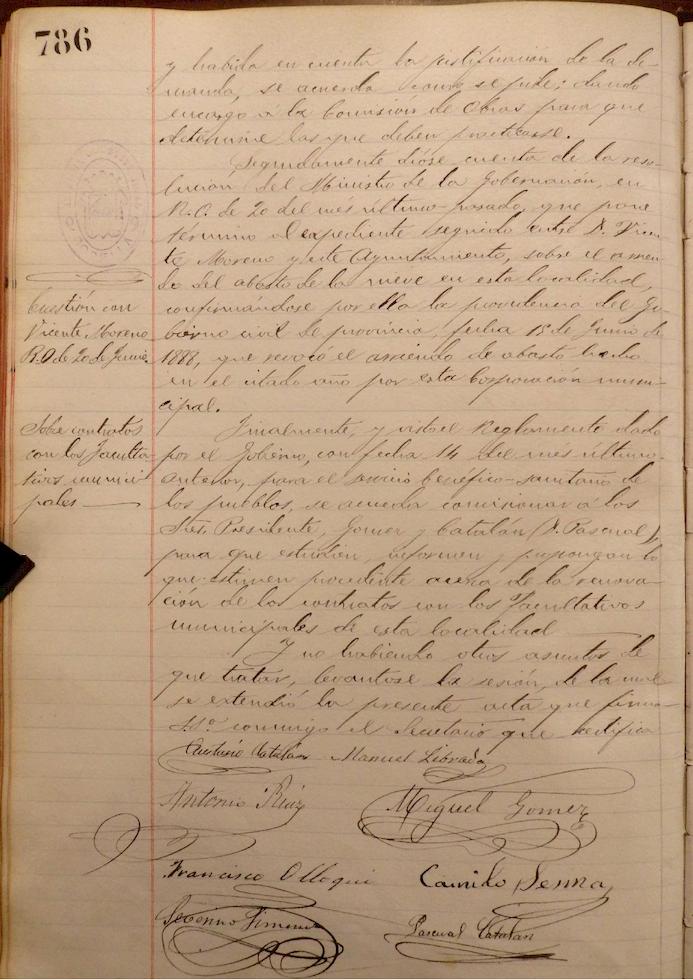 786
y habida en cuenta la justificación de la de-
manda, se acuerda como se pide; dando
encargo á la Comisión de Obras para que
determine las que deben practicarse.
Seguidamente dióse cuenta de la reso-
lución del Ministro de la Gobernación, en
R.O. de 20 del més último pasado, que pone
término al expediente seguido entre D. Vicen-
te Moreno y este Ayuntamiento, sobre el arrien-
do del abasto de la nieve en esta localidad,
confirmándose por ella la providencia del Go-
bierno civil de provincia, fecha 15 de Junio de
1888, que revocó el arriendo de abasto hecho
en el citado año por esta Corporación muni-
cipal.
Cuestión con
Vicente Moreno
R.O de 20 de Junio
Finalmente, y visto el Reglamento dado
por el Gobierno, con fecha 14 del mes último
anterior, para el servicio benéfico-sanitario de
los pueblos, se acuerda comisionar á los
Sres. Presidente, Gomez y Catalán (D. Pascual),
para que estudien, informen y propongan lo
que estimen procedente acerca de la renova-
ción de los contratos con los Facultativos
municipales de esta localidad
Sobre contratos
con los Faculta-
tivos munici-
pales
Y no habiendo otros asuntos de
que tratar, levantose la sesión, de la cual
se extendió la presente acta que firma
conmigo el Secretario que certifico
Catalán Manuel Librada
Antonio Ruiz Miguel Gomez
Francisco Olloqui Camilo Senna
Jimenez Pascual Catalán